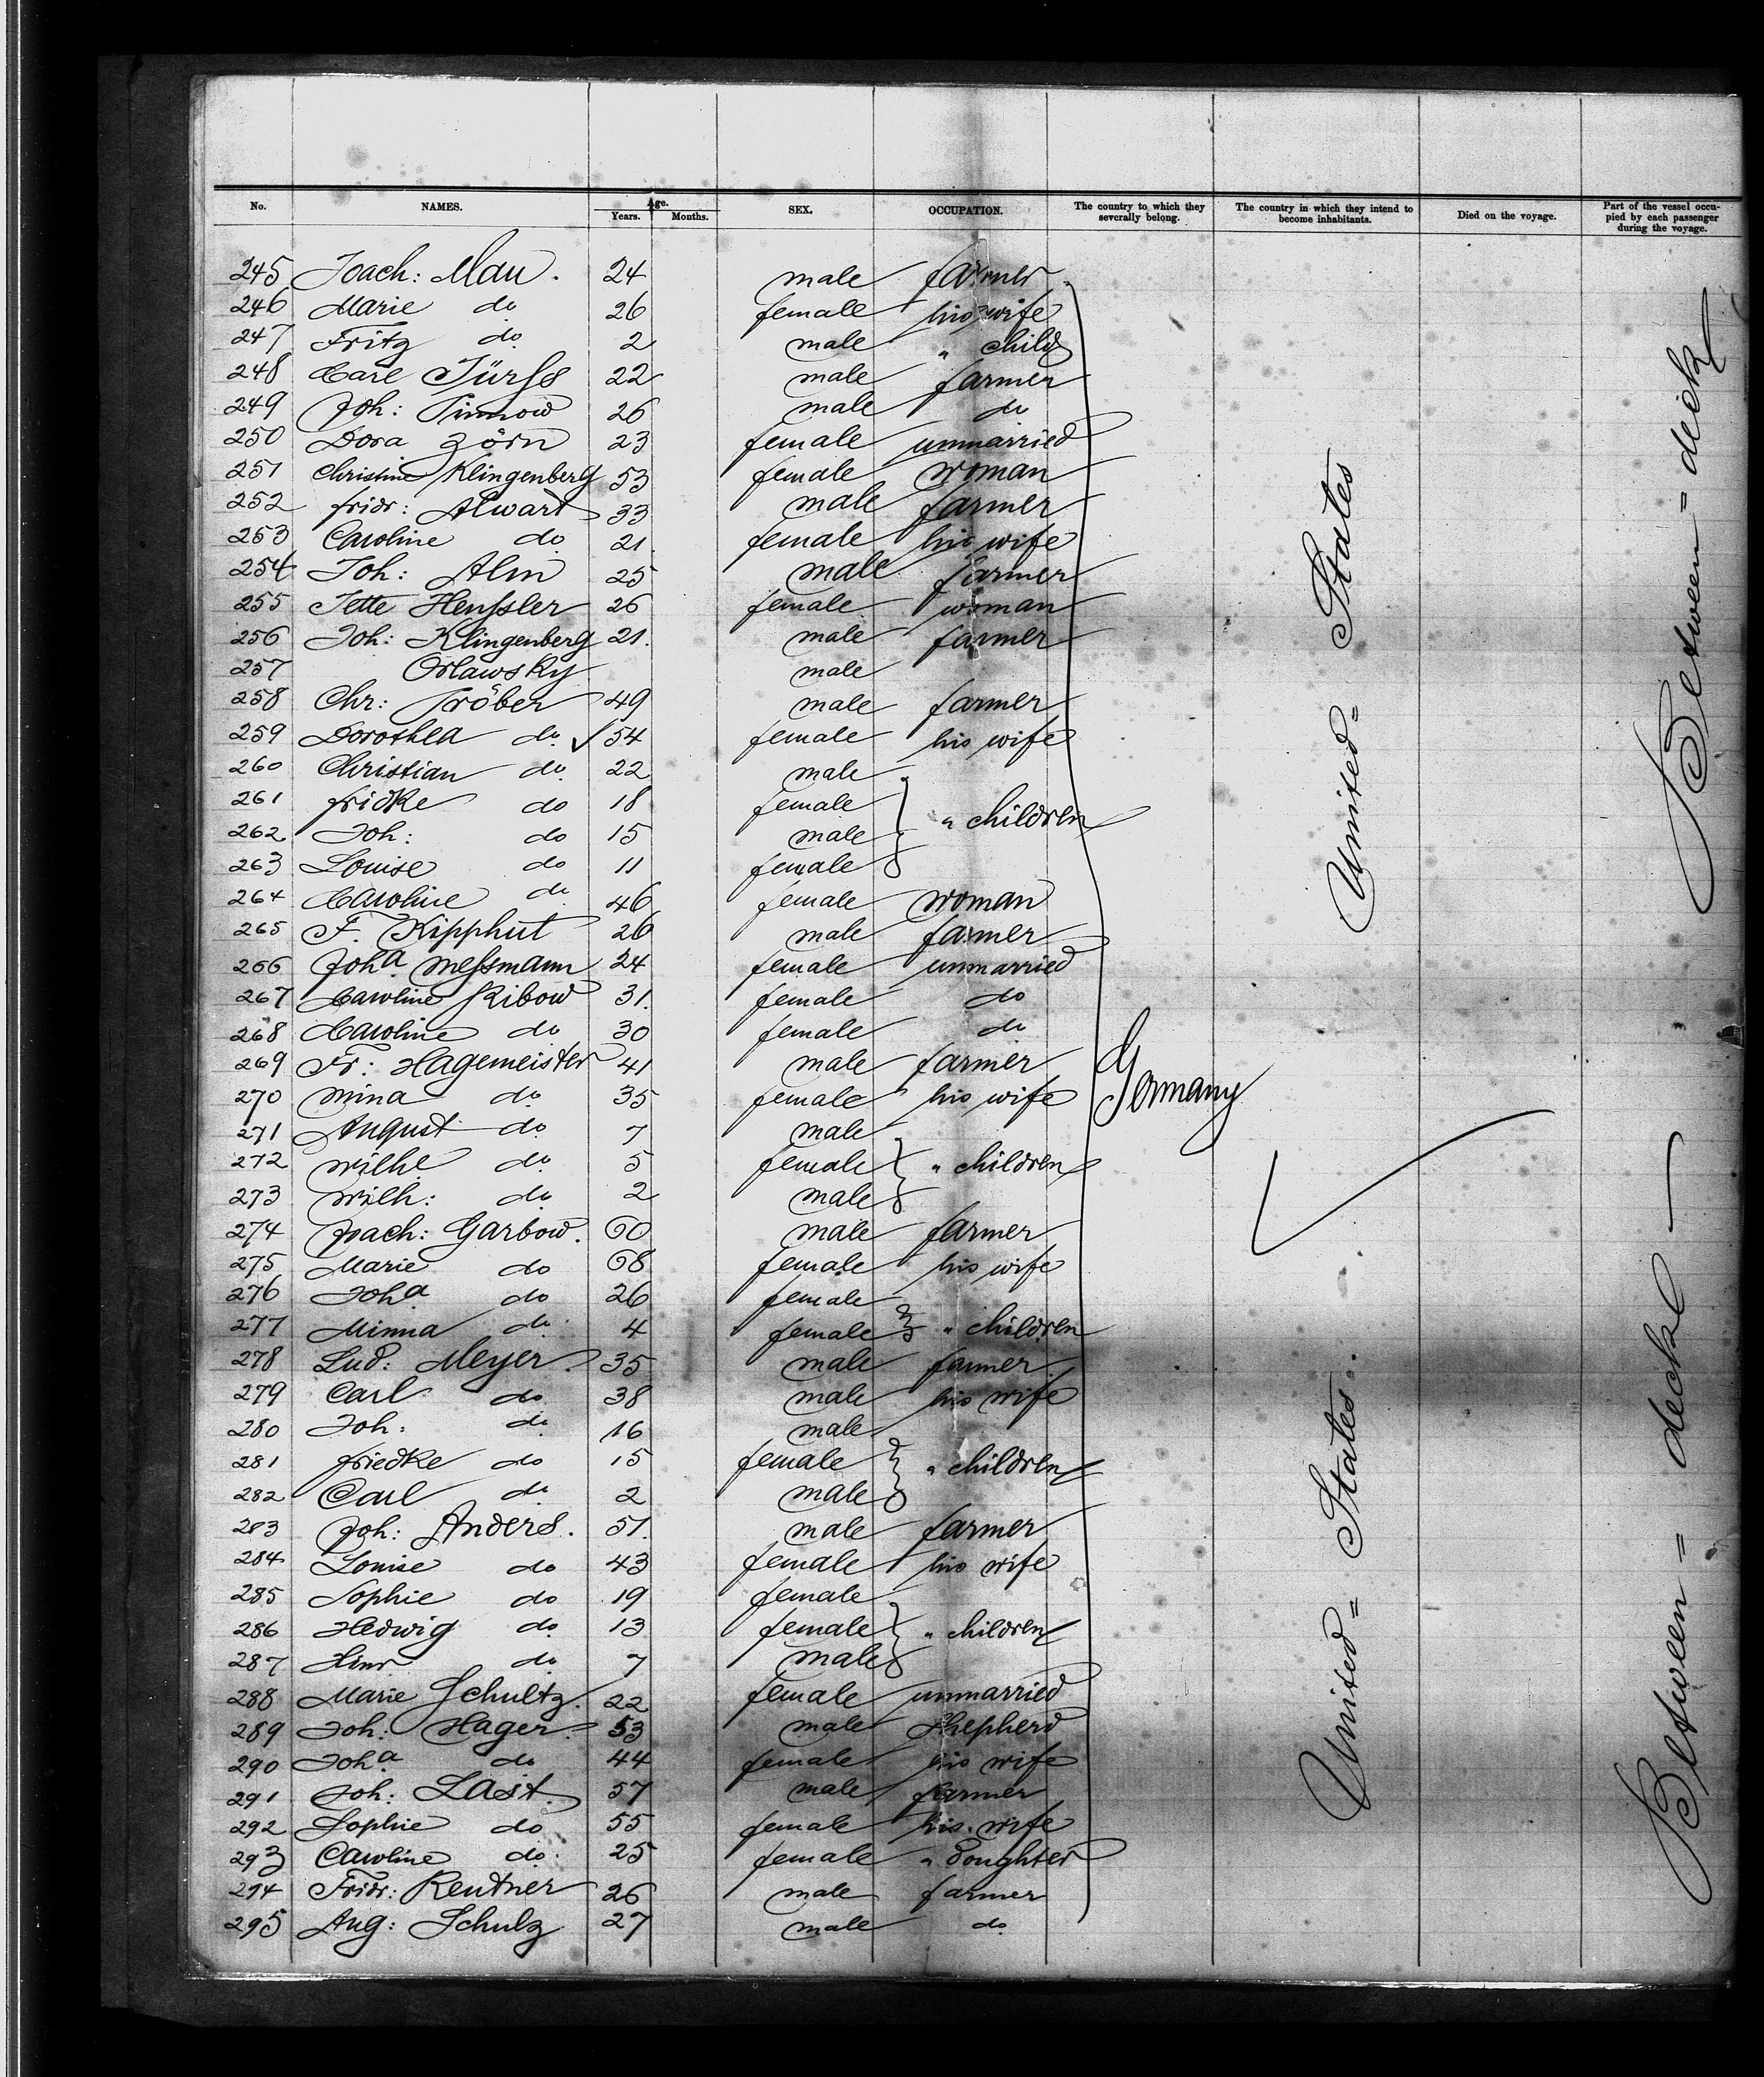 No. NAMES. Age. Years. Months. SEX. OCCUPATION. The country to which they severally belong. The country in which they intend to become inhabitants. Died on the voyage. Part of the vessel occupied by each passenger during the voyage.
245 Joach: Mau. 24 male farmer
246 Marie do 26 female his wife
247 Fritz do 2 male " child
248 Carl Jürss 22 male farmer
249 Joh: 26 male do
250 Dora Zörn 23 female unmarried
251 Christine Klingenberg 53 female woman
252 fridr: Alwart 33 male farmer
253 Caroline do 21. female his wife
254 Joh: Alm 25 male farmer
255 Jette Henssler 26 female woman
256 Joh: Klingenberg 21. male farmer
257 Orlawsky male
258 Chr: Tröber 49 male farmer
259 Dorothea do 54 female his wife
260 Christian do 22 male
261 fridke do 18 female
" children
262 Joh: do 15 male
263 Louise do 11 female
264 Caroline do 46 female woman
265 F. Kipphut 26 male farmer
266 Joha Messmann 24 female unmarried
267 Caroline Ribow 31. female do
268 Caroline do 30 female do
269 Fr: Hagemeister 41 male farmer
270 Mina do 35 female his wife
Germany
271 August do 7 male
272 Wilhe do 5 female " children
273 Wilh: do 2 male
274 Joach: Garbow. 60 male farmer
275 Marie do 68 female his wife
276 Joha do 26 female
277 Minna do 4 female " children
278 Lud: Meyer. 35 male farmer
279 Carl do 38 male his wife
280 Joh: do 16 male
281 friedke do 15 female " children
282 Carl do 2 male
283 Joh: Anders. 51. male farmer
284 Louise do 43 female his wife
285 Sophie do 19 female
286 Hedwig do 13 female " children
287 do 7 male
288 Marie Schultz. 22 female unmarried
289 Joh: Hager 53 male Shepherd
290 Joha do 44 female his wife
291 Joh: Last. 57 male farmer
292 Sophie do 55 female his wife
293 Caroline do 25 female " doughter
294 Fridr: Rentner 26 male farmer
295 Aug: Schulz 27 male do
United = States
United = States.
Between = deck
Between = deck —